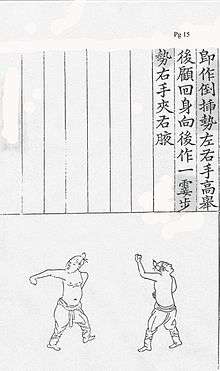 Pg 15
即作倒揷勢左右手高舉
後顧回身向後作一霎步
勢右手夾右腋